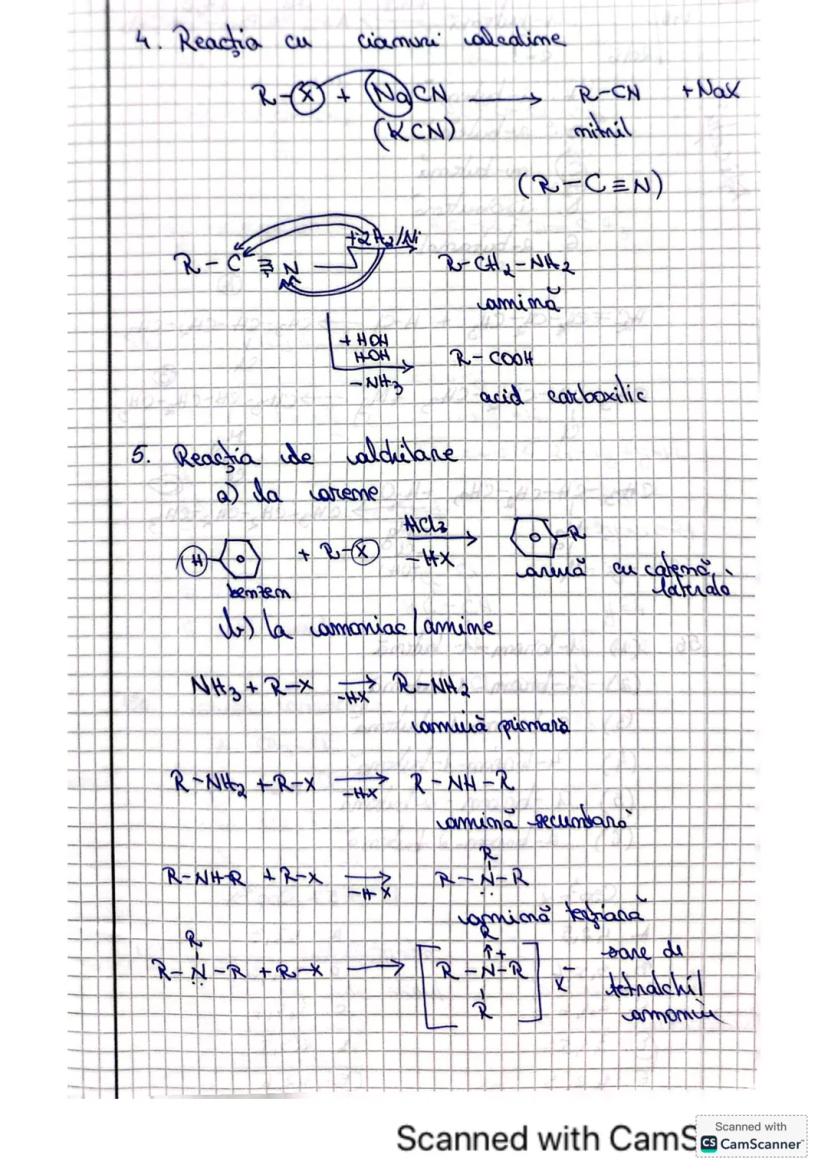 4. Reacția cu cianuri alcaline
R-X + NaCN → R-CN + NaX
(KCN) nitril
(R-C≡N)
R-C≡N +2H₂/Ni → R-CH₂-NH₂
amină
+HOH
HOH → R-COOH
-NH₃
acid carboxilic
5. Reacția de alchilare
a) la arene
H- + R-X AlCl₃ → -R
-HX
benzen arenă cu catenă laterală
b) la amoniac/amine
NH₃ + R-X → R-NH₂
-HX
amină primară
R-NH₂ + R-X → R-NH-R
-HX
amină secundară
R
R-NH-R + R-X → R-N-R
-HX
amină terțiară
R R
R-N-R + R-X → [R-N-R]⁺ X⁻ sare de
R tetraalchil
amoniu
Scanned with CamS
Scanned with
CS CamScanner